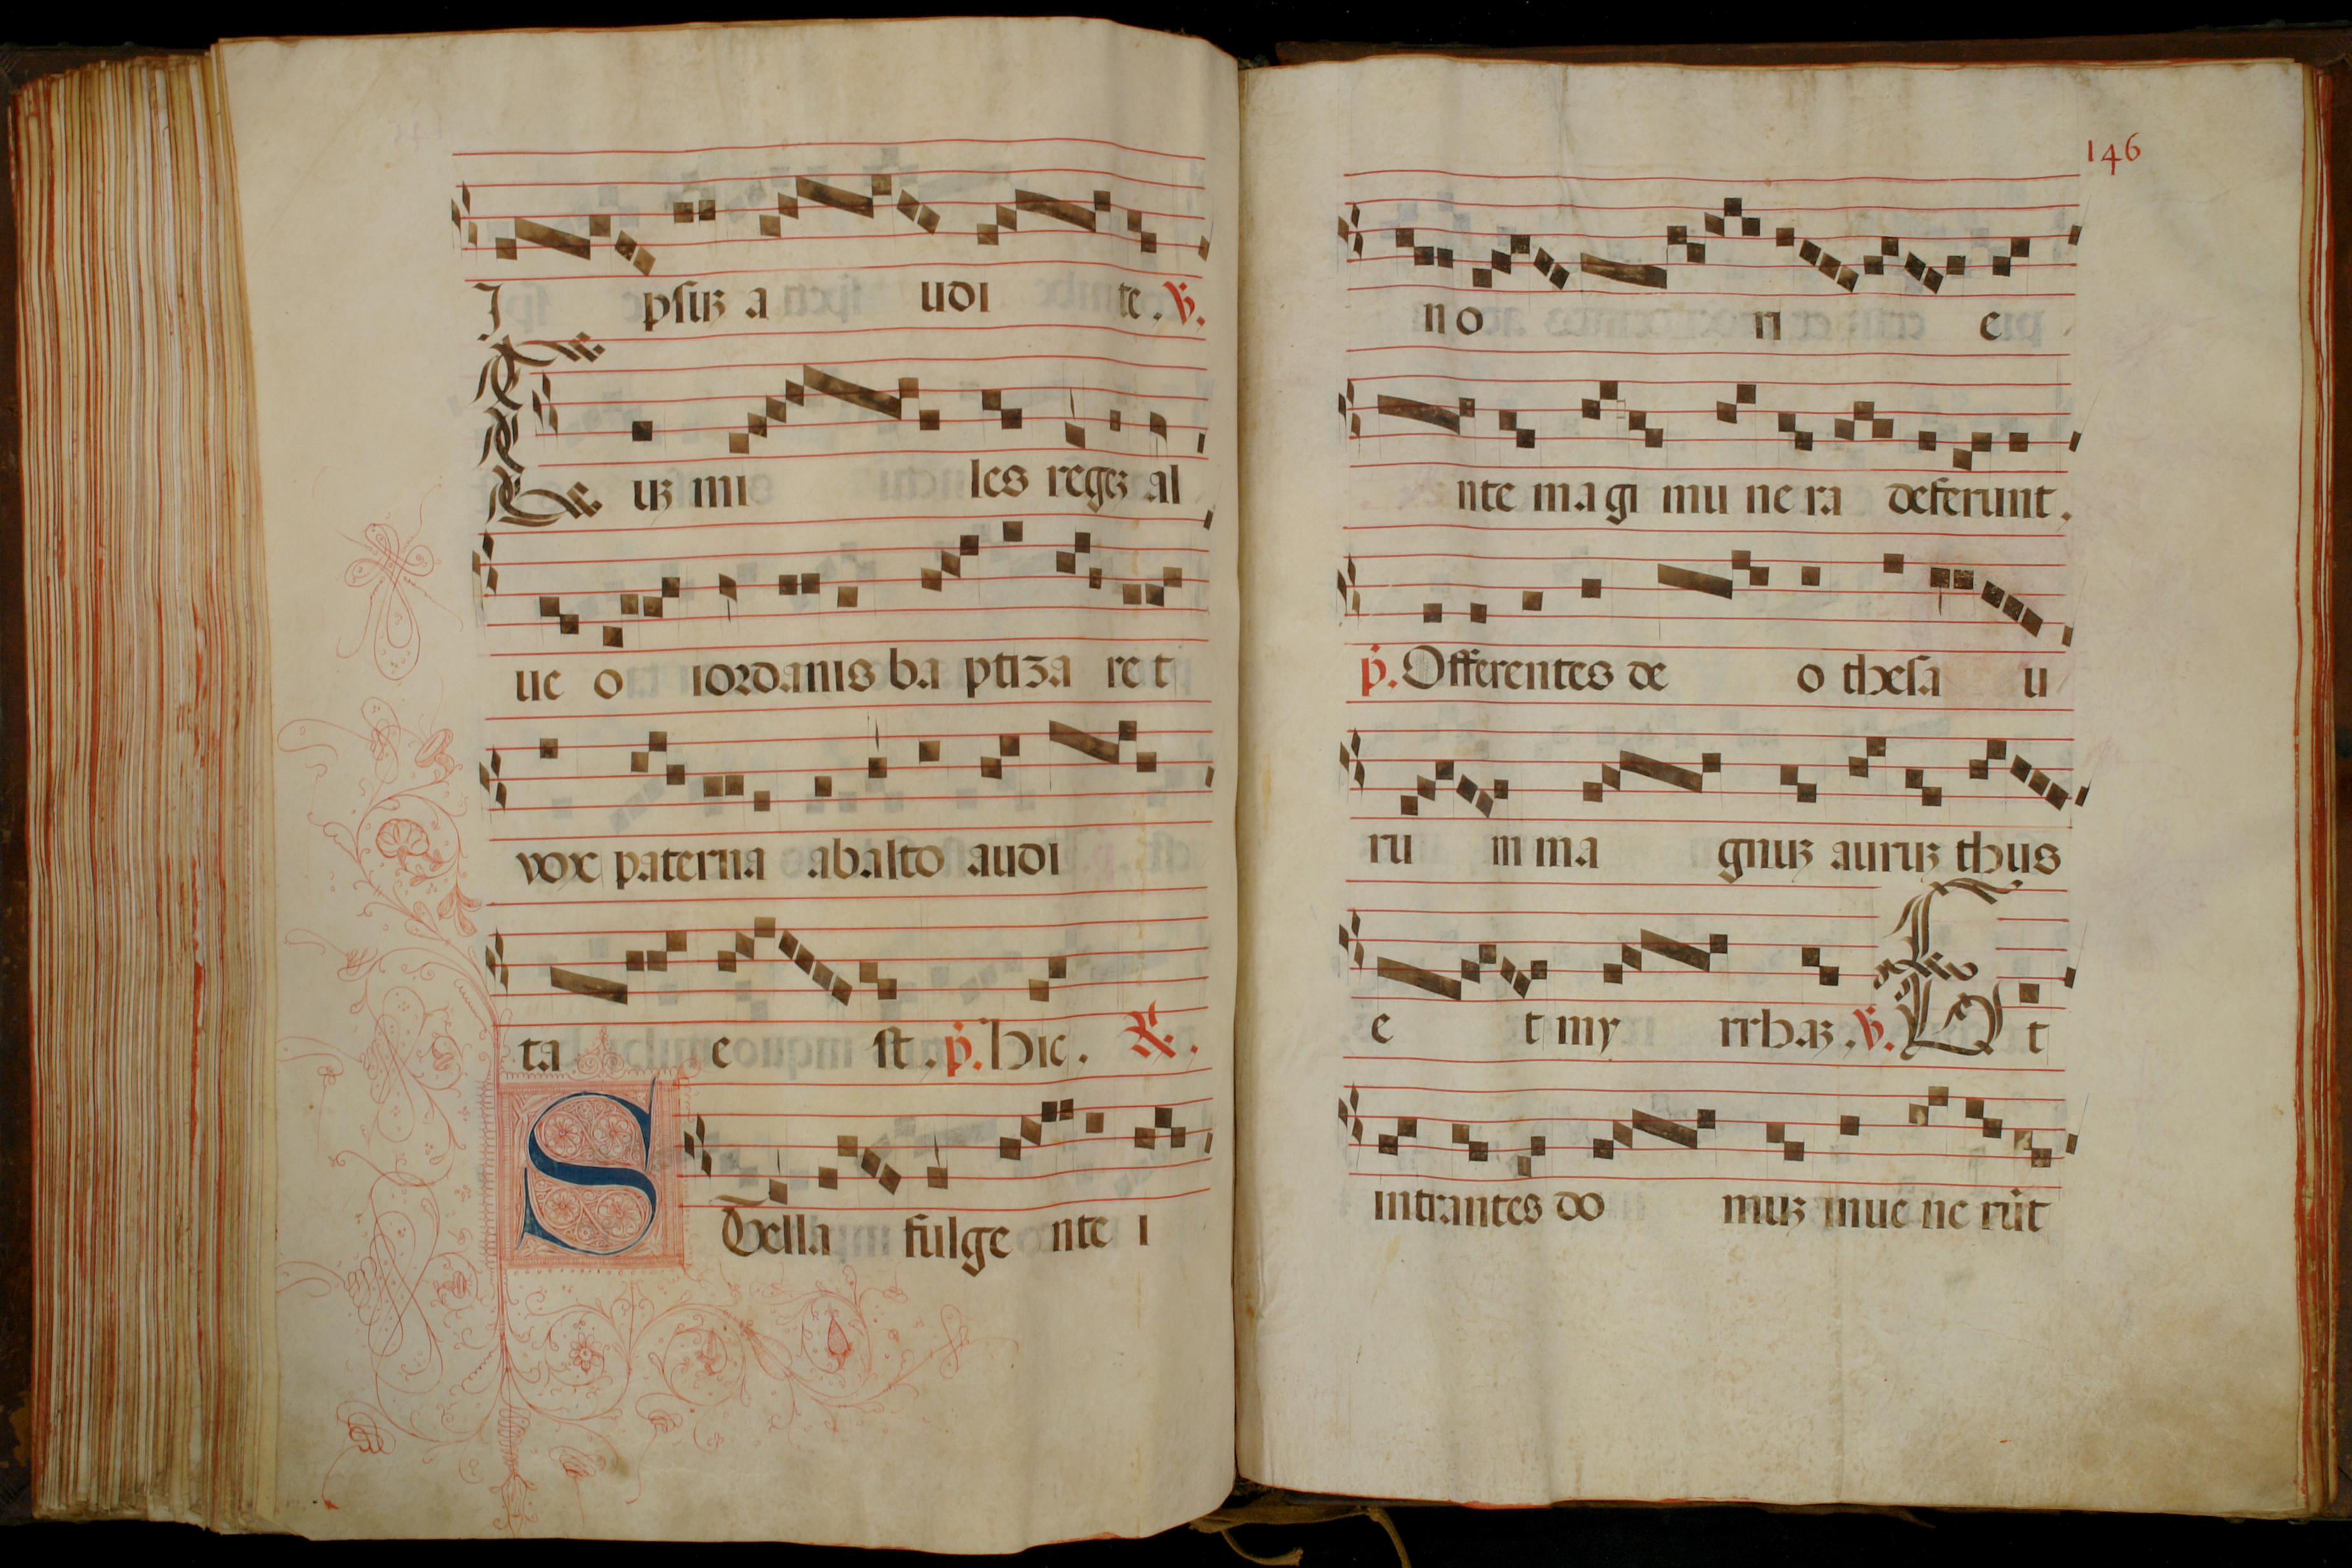 I psuꝫ a udi te. ℣.
Cuꝫ mi les regeꝫ al
ue o iordanis ba ptiza re t
vox paterna abalto audi
ta e st. p̄. Hic. ℟.
Stella fulge nte i
146
no ri e
nte magi mu ne ra deferunt.
p̄. Offerentes de o thesa u
ru m ma gnuꝫ auruꝫ thus
e t my rrhaꝫ. ℣. Et
intrantes do muꝫ inue ne rūt